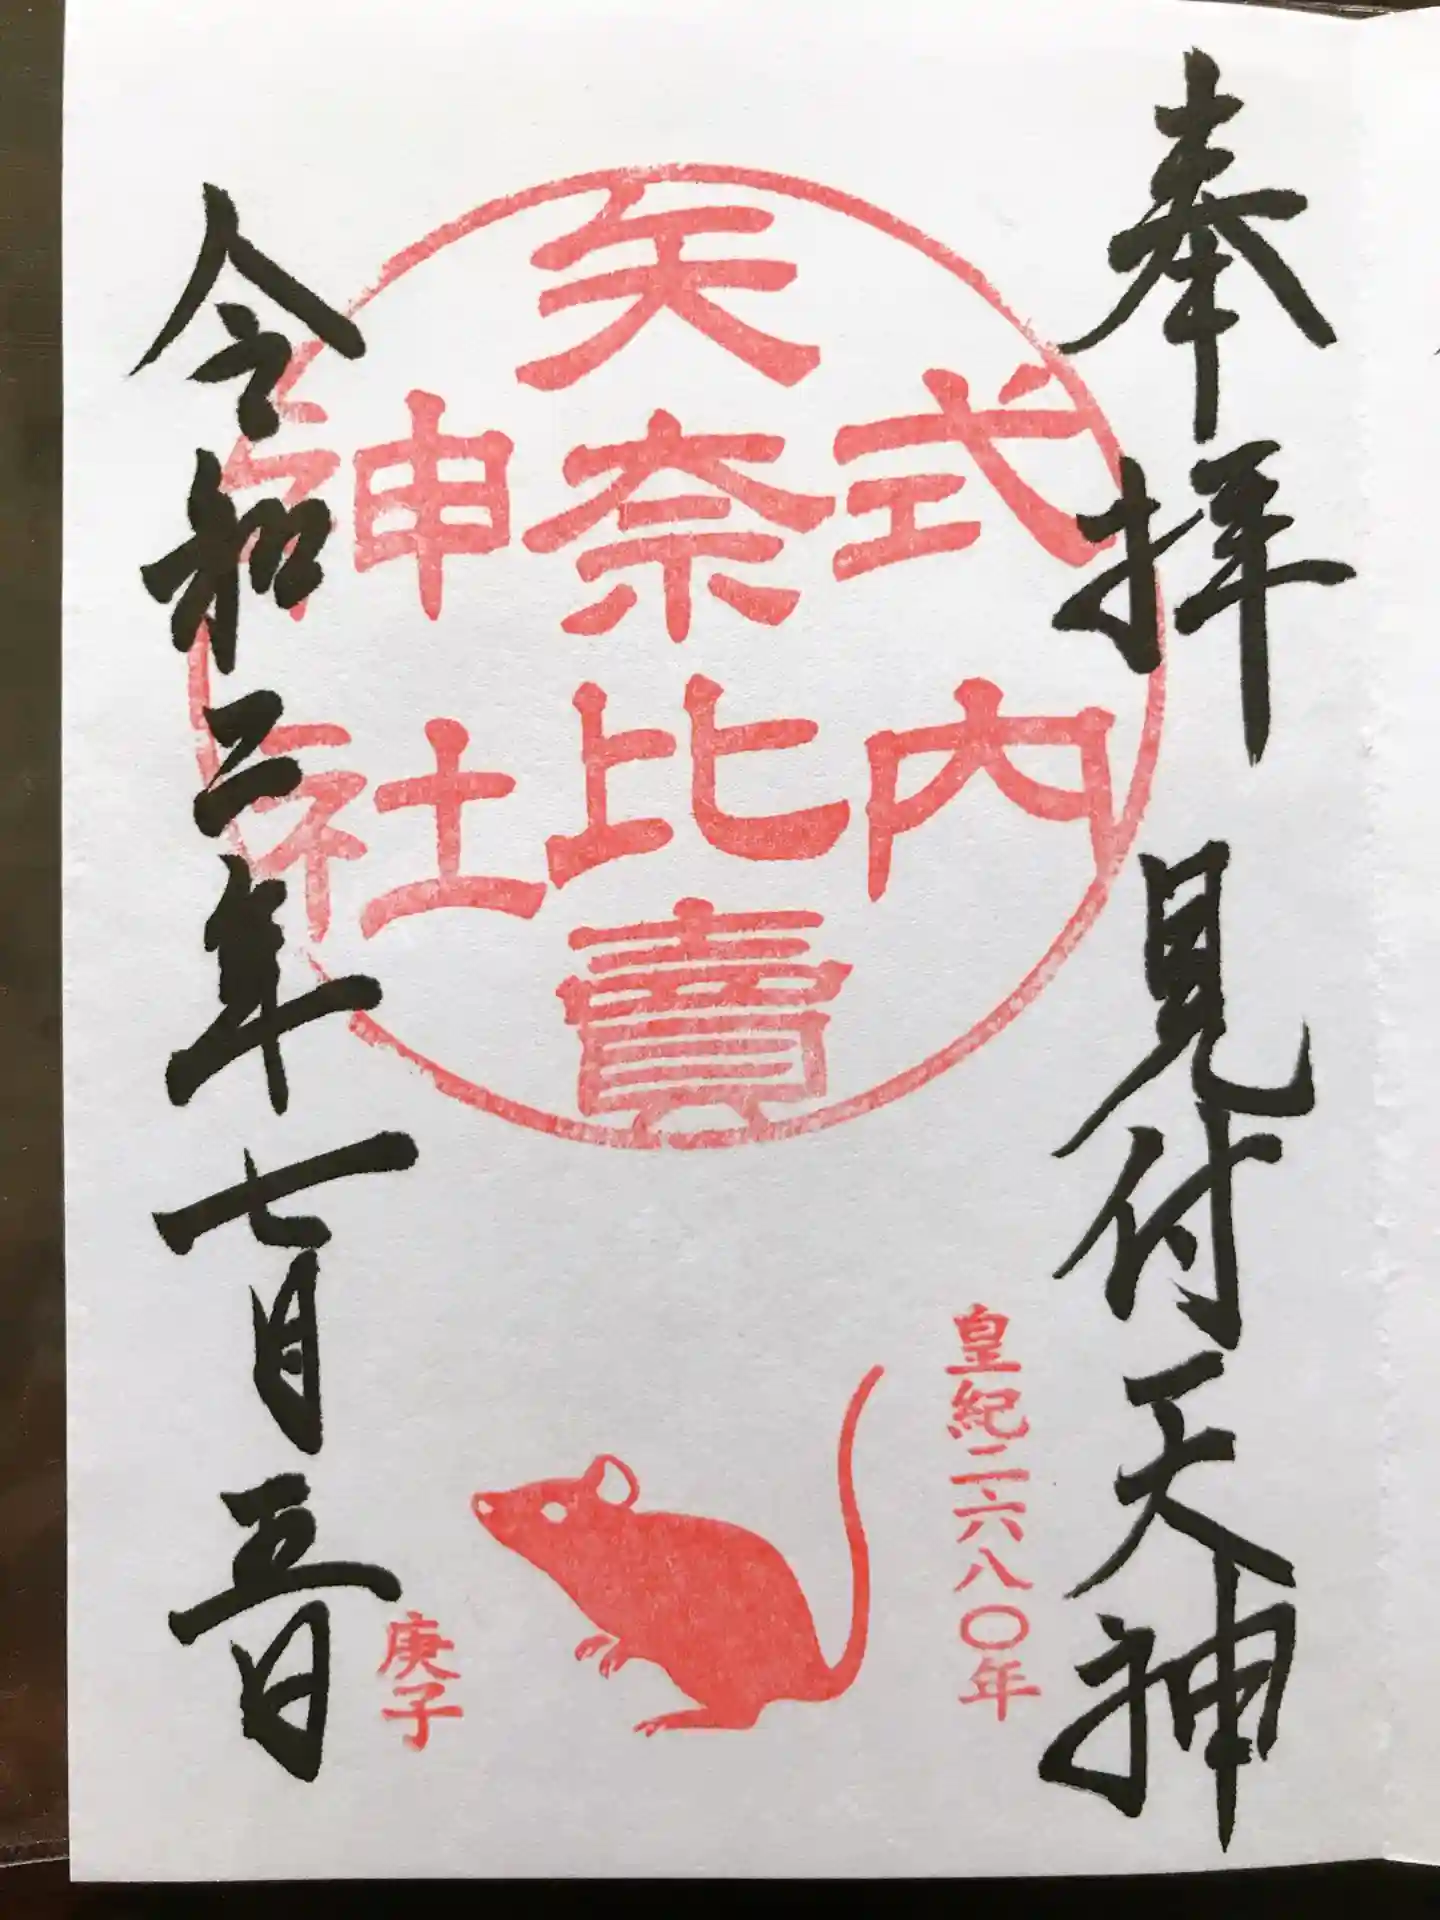 奉拝 見付天神
皇紀二六八〇年
式内
矢奈比賣
神社
庚子
令和二年七月五日